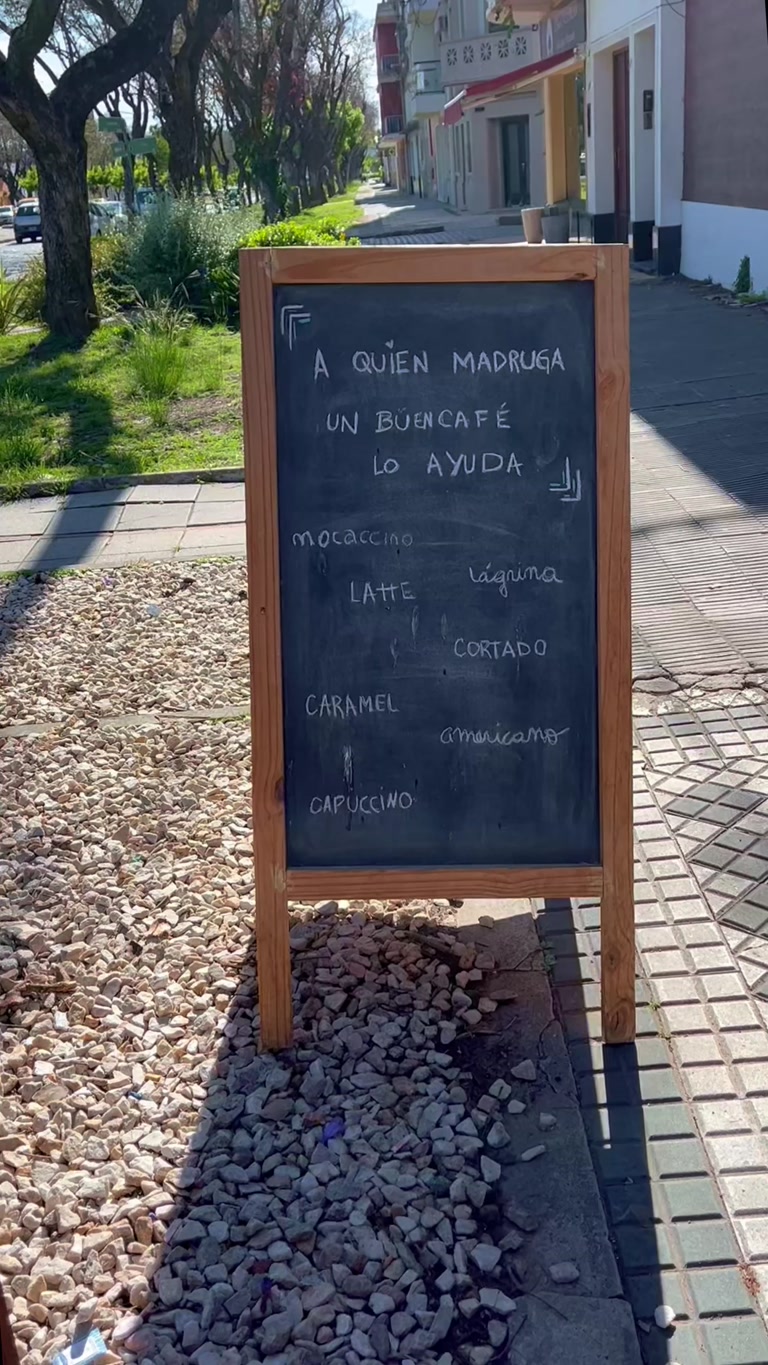 A QUIEN MADRUGA
UN BUEN CAFÉ
LO AYUDA
mocaccino
LATTE
lágrima
CORTADO
CARAMEL
americano
CAPUCCINO